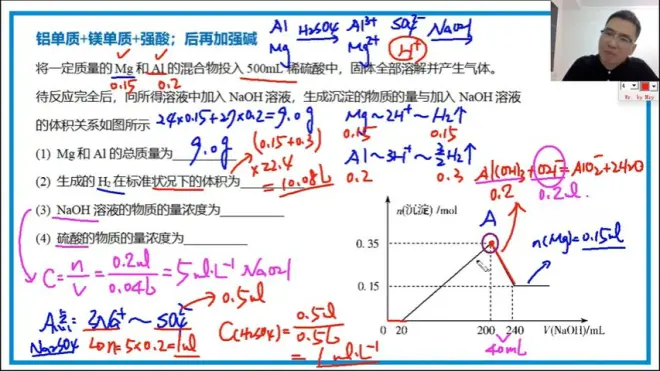 铝单质+镁单质+强酸；后再加强碱
Al H₂SO₄ Al³⁺ SO₄²⁻ NaOH
Mg Mg²⁺ H⁺
将一定质量的 Mg 和 Al 的混合物投入 500mL 稀硫酸中，固体全部溶解并产生气体。
0.15 0.2
待反应完全后，向所得溶液中加入 NaOH 溶液，生成沉淀的物质的量与加入 NaOH 溶液
的体积关系如图所示
24×0.15+27×0.2=9.0g
Mg~2H⁺~H₂↑
0.15 0.15
(1) Mg 和 Al 的总质量为
9.0g
(0.15+0.3)
×22.4
=10.08L
Al~3H⁺~3/2H₂↑
0.2 0.3
(2) 生成的 H₂在标准状况下的体积为
Al(OH)₃+OH⁻=AlO₂⁻+2H₂O
0.2 0.2mol
(3) NaOH 溶液的物质的量浓度为
(4) 硫酸的物质的量浓度为
C=n/V=0.2mol/0.04L=5mol·L⁻¹ NaOH
0.5mol
A点: 2Na⁺~SO₄²⁻
Na₂SO₄
n=5×0.2=1mol
C(H₂SO₄)=0.5mol/0.5L
=1mol·L⁻¹
n(沉淀) /mol
A
0.35
n(Mg)=0.15mol
0.15
0 20 200 240 V(NaOH)/mL
40mL